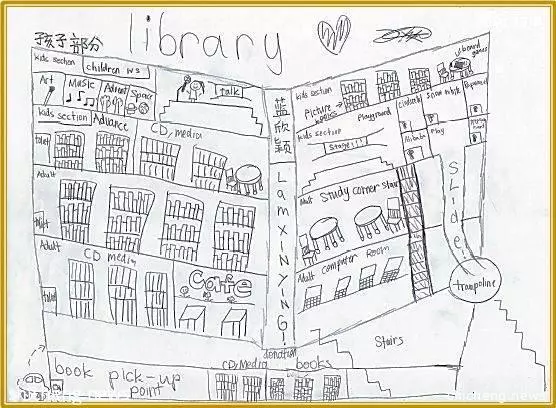 library
孩子部分
kids section
children ws
Art
Music
Animal
Space
talk
kids section
Advance
CD, media
toilet
Adult
toilet
Adult
CD media
Cafe
toilet
蓝欣颖
LAM XIN YING!
board games
kids section
Picture books
Playground
Cinderella
Snow White
Rapunzel
kids section
Stage!!!
Play
Adult
Study corner
Stair
SLide!
Adult
Computer Room
trampoline
Stairs
donation
CD/Media
books
book pick-up point